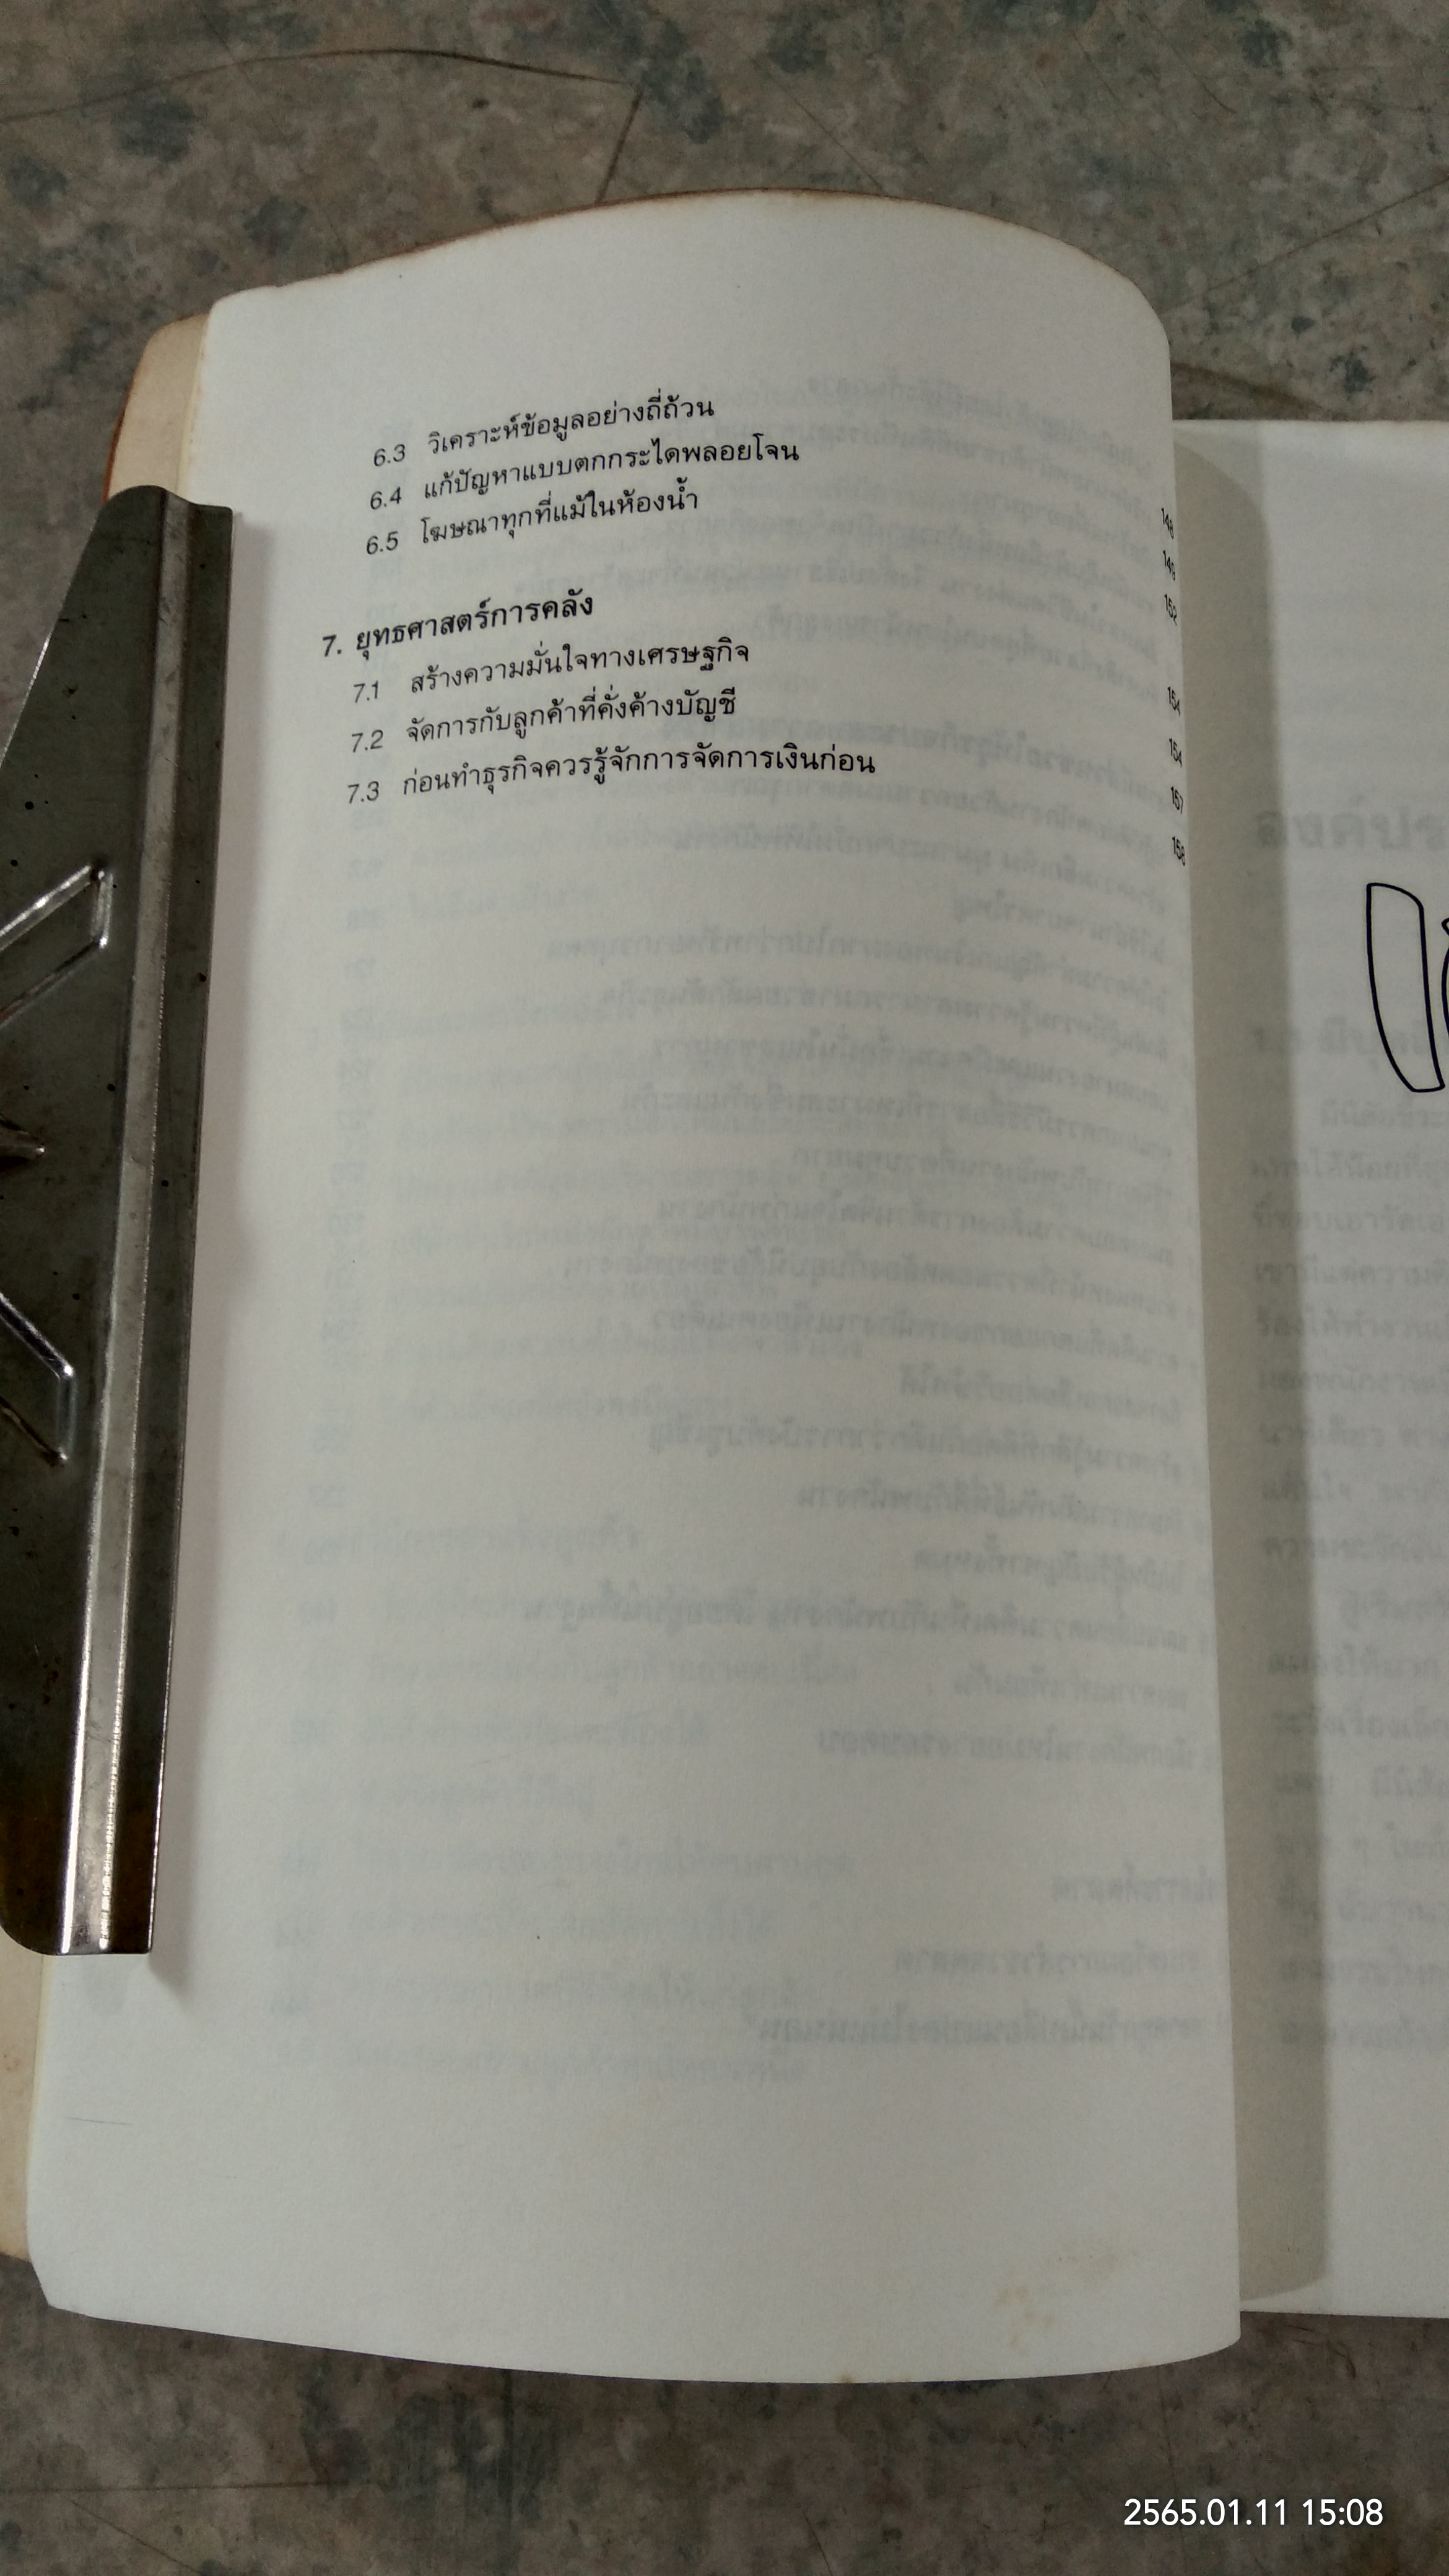 6.3 วิเคราะห์ข้อมูลอย่างถี่ถ้วน 148
6.4 แก้ปัญหาแบบตกกระไดพลอยโจน 149
6.5 โฆษณาทุกที่แม้ในห้องน้ำ 152
7. ยุทธศาสตร์การคลัง 154
7.1 สร้างความมั่นใจทางเศรษฐกิจ 154
7.2 จัดการกับลูกค้าที่คั่งค้างบัญชี 157
7.3 ก่อนทำธุรกิจควรรู้จักการจัดการเงินก่อน 158
2565.01.11 15:08